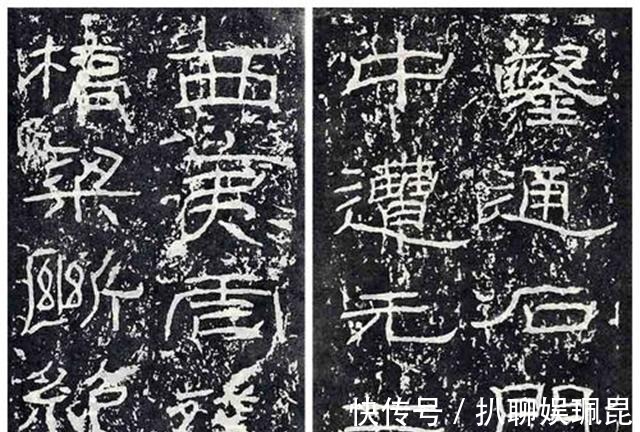 鑿通石門
中遭元二
西夷虐殘
橋梁斷絕
快传号 / 扒聊娱珮昆